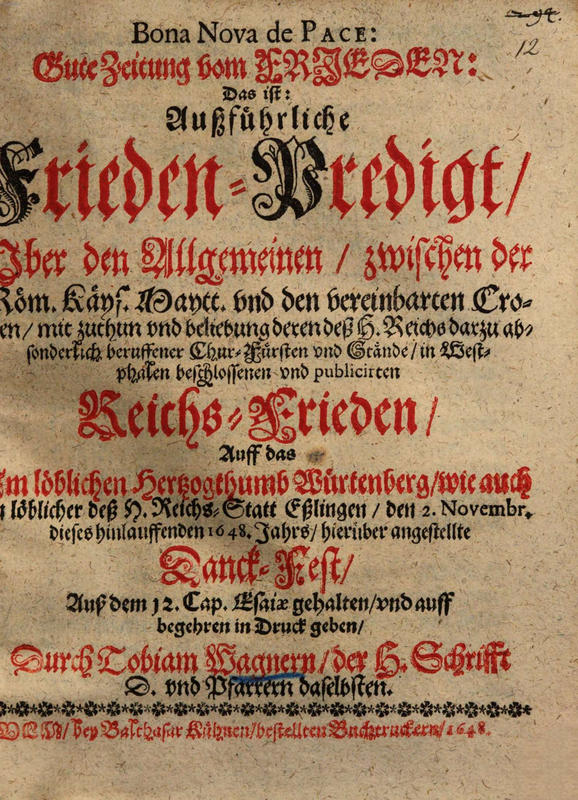 94.
12
Bona Nova de PACE:
Gute Zeitung vom FRIEDEN:
Das ist:
Außführliche
Frieden-Predigt/
Vber den Allgemeinen / zwischen der
Röm. Käys. Maytt. vnd den vereinbarten Cro-
en/ mit zuthun vnd beliebung deren deß H. Reichs darzu ab-
sonderlich beruffener Chur-Fürsten vnd Stände/ in West-
phalen beschlossenen vnd publicirten
Reichs-Frieden/
Auff das
Im löblichen Hertzogthumb Würtenberg/ wie auch
löblicher deß H. Reichs-Statt Eßlingen / den 2. Novembr.
dieses hinlauffenden 1648. Jahrs/ hierüber angestellte
Danck-Fest/
Auß dem 12. Cap. Esaiæ gehalten/ vnd auff
begehren in Druck geben/
Durch Tobiam Wagnern/ der H. Schrifft
D. vnd Pfarrern daselbsten.
VLM/ bey Balthasar Kühnen/ bestellten Buchtruckern/ 1648.